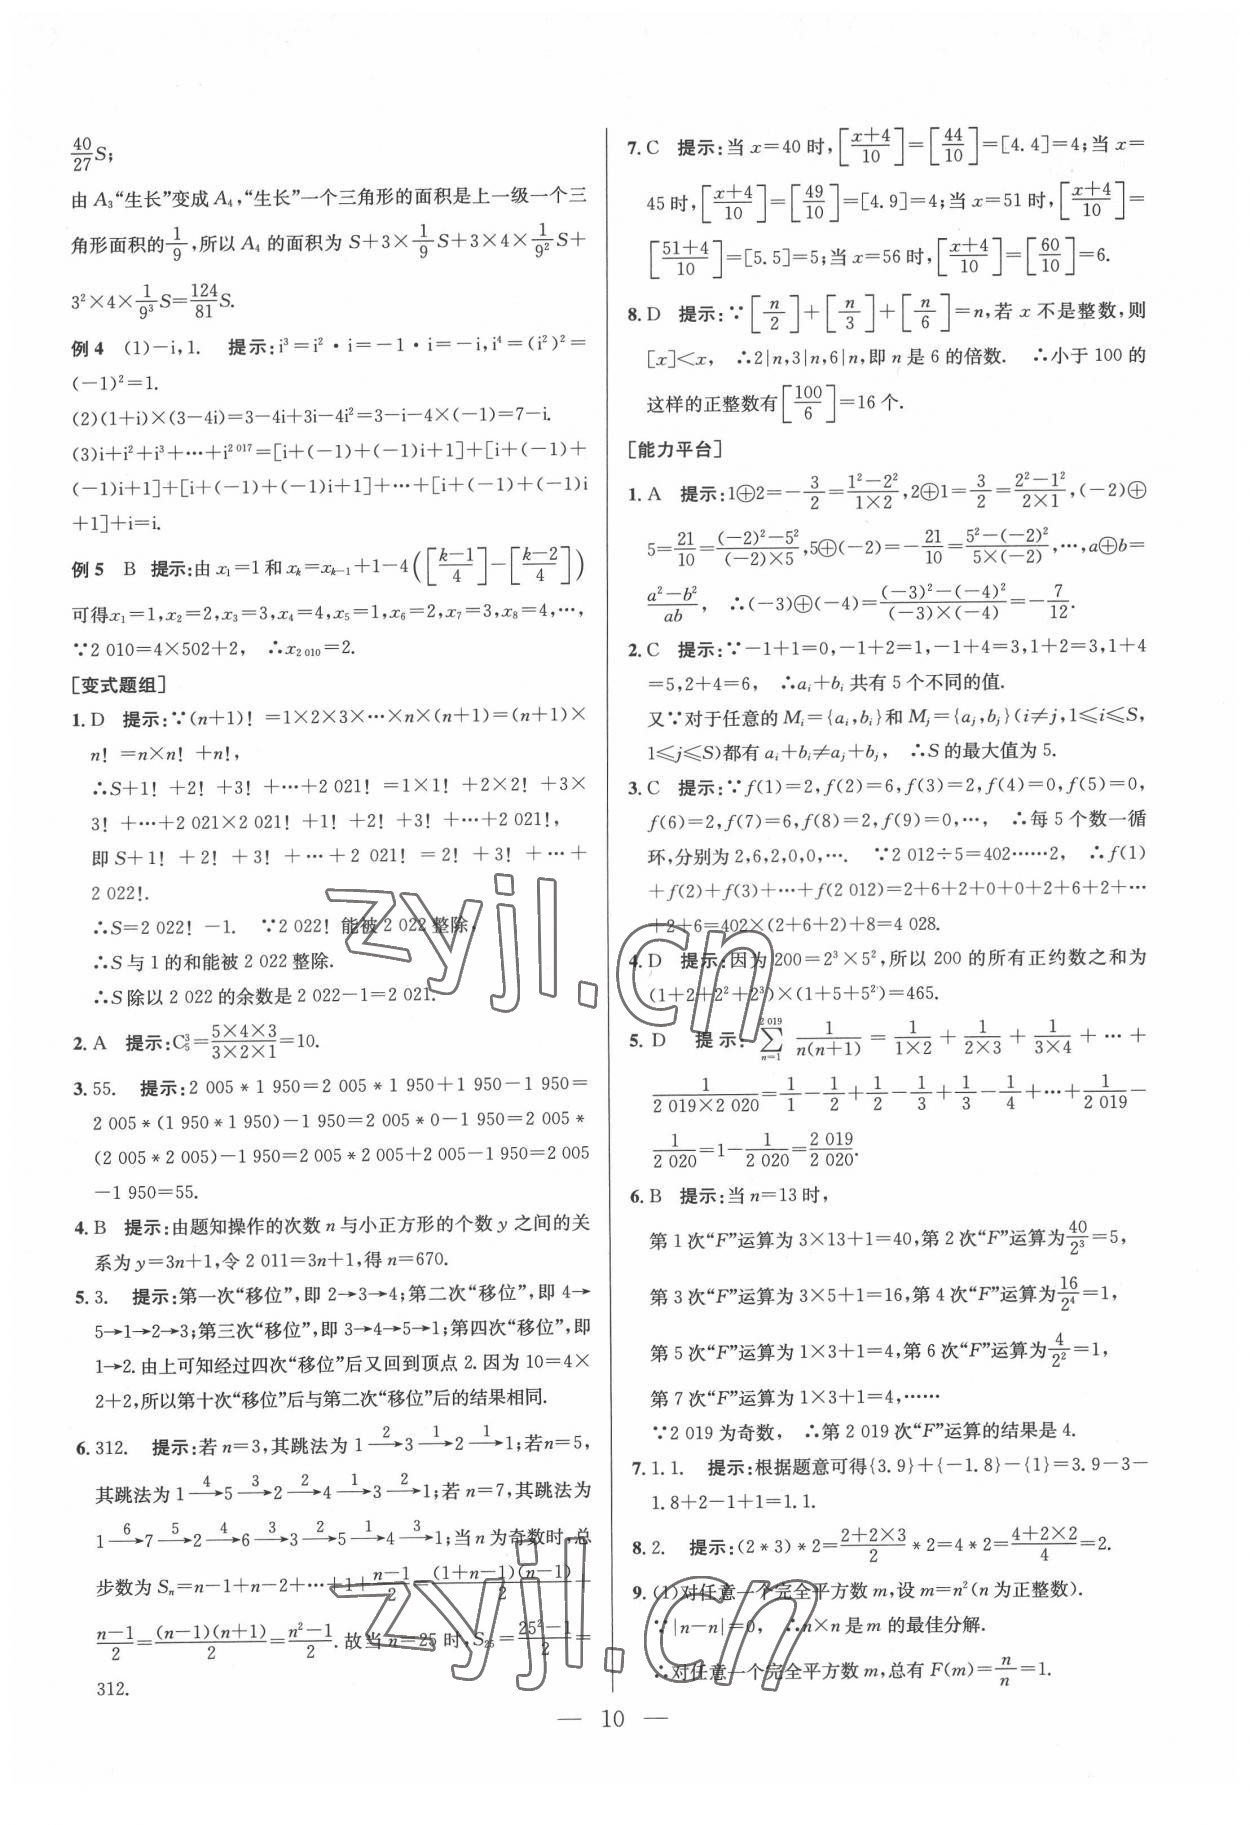 40/27 S;
由 A₃“生长”变成 A₄,“生长”一个三角形的面积是上一级一个三
角形面积的 1/9,所以 A₄ 的面积为 S+3×1/9 S+3×4×1/9² S+
3²×4×1/9³ S=124/81 S.
例 4 (1)-i,1. 提示:i³=i²·i=-1·i=-i,i⁴=(i²)²=
(-1)²=1.
(2)(1+i)×(3-4i)=3-4i+3i-4i²=3-i-4×(-1)=7-i.
(3)i+i²+i³+…+i²⁰¹⁷=[i+(-1)+(-1)i+1]+[i+(-1)+
(-1)i+1]+[i+(-1)+(-1)i+1]+…+[i+(-1)+(-1)i
+1]+i=i.
例 5 B 提示:由 x₁=1 和 xₖ=xₖ₋₁+1-4([(k-1)/4]-[(k-2)/4])
可得x₁=1,x₂=2,x₃=3,x₄=4,x₅=1,x₆=2,x₇=3,x₈=4,…,
∵2 010=4×502+2, ∴x₂₀₁₀=2.
[变式题组]
1. D 提示:∵(n+1)!=1×2×3×…×n×(n+1)=(n+1)×
n!=n×n!+n!,
∴S+1!+2!+3!+…+2 021!=1×1!+2×2!+3×
3!+…+2 021×2 021!+1!+2!+3!+…+2 021!,
即 S+1!+2!+3!+…+2 021!=2!+3!+…+
2 022!.
∴S=2 022!-1. ∵2 022!能被 2 022 整除,
∴S 与 1 的和能被 2 022 整除.
∴S 除以 2 022 的余数是 2 022-1=2 021.
2. A 提示:C₅³=(5×4×3)/(3×2×1)=10.
3. 55. 提示:2 005*1 950=2 005*1 950+1 950-1 950=
2 005*(1 950*1 950)-1 950=2 005*0-1 950=2 005*
(2 005*2 005)-1 950=2 005*2 005+2 005-1 950=2 005
-1 950=55.
4. B 提示:由题知操作的次数 n 与小正方形的个数 y 之间的关
系为 y=3n+1,令 2 011=3n+1,得 n=670.
5. 3. 提示:第一次“移位”,即 2→3→4;第二次“移位”,即 4→
5→1→2→3;第三次“移位”,即 3→4→5→1;第四次“移位”,即
1→2.由上可知经过四次“移位”后又回到顶点 2.因为 10=4×
2+2,所以第十次“移位”后与第二次“移位”后的结果相同.
6. 312. 提示:若 n=3,其跳法为 1 —2→3 —1→2 —1→1;若n=5,
其跳法为 1 —4→5 —3→2 —2→4 —1→3 —2→1;若 n=7,其跳法为
1 —6→7 —5→2 —4→6 —3→3 —2→5 —1→4 —3→1;当 n 为奇数时,总
步数为 Sₙ=n-1+n-2+…+1+(n-1)/2=(1+n-1)(n-1)/2+
(n-1)/2=(n-1)(n+1)/2=(n²-1)/2.故当 n=25 时,S₂₅=(25²-1)/2=
312.
7. C 提示:当 x=40 时,[(x+4)/10]=[44/10]=[4.4]=4;当 x=
45 时,[(x+4)/10]=[49/10]=[4.9]=4;当 x=51 时,[(x+4)/10]=
[(51+4)/10]=[5.5]=5;当 x=56 时,[(x+4)/10]=[60/10]=6.
8. D 提示:∵[n/2]+[n/3]+[n/6]=n,若 x 不是整数,则
[x]<x, ∴2|n,3|n,6|n,即 n 是 6 的倍数. ∴小于 100 的
这样的正整数有[100/6]=16 个.
[能力平台]
1. A 提示:1⊕2=-3/2=(1²-2²)/(1×2),2⊕1=3/2=(2²-1²)/(2×1),(-2)⊕
5=21/10=((-2)²-5²)/((-2)×5),5⊕(-2)=-21/10=(5²-(-2)²)/(5×(-2)),…,a⊕b=
(a²-b²)/ab, ∴(-3)⊕(-4)=((-3)²-(-4)²)/((-3)×(-4))=-7/12.
2. C 提示:∵-1+1=0,-1+2=1,-1+4=3,1+2=3,1+4
=5,2+4=6, ∴aᵢ+bᵢ 共有 5 个不同的值.
又∵对于任意的 Mᵢ={aᵢ,bᵢ}和 Mⱼ={aⱼ,bⱼ}(i≠j,1≤i≤S,
1≤j≤S)都有 aᵢ+bᵢ≠aⱼ+bⱼ, ∴S 的最大值为 5.
3. C 提示:∵f(1)=2,f(2)=6,f(3)=2,f(4)=0,f(5)=0,
f(6)=2,f(7)=6,f(8)=2,f(9)=0,…, ∴每 5 个数一循
环,分别为 2,6,2,0,0,…. ∵2 012÷5=402……2, ∴f(1)
+f(2)+f(3)+…+f(2 012)=2+6+2+0+0+2+6+2+…
+2+6=402×(2+6+2)+8=4 028.
4. D 提示:因为 200=2³×5²,所以 200 的所有正约数之和为
(1+2+2²+2³)×(1+5+5²)=465.
5. D 提示:∑(n=1→2 019) 1/(n(n+1))=1/(1×2)+1/(2×3)+1/(3×4)+…+
1/(2 019×2 020)=1/1-1/2+1/2-1/3+1/3-1/4+…+1/2 019-
1/2 020=1-1/2 020=2 019/2 020.
6. B 提示:当 n=13 时,
第 1 次“F”运算为 3×13+1=40,第 2 次“F”运算为40/2³=5,
第 3 次“F”运算为 3×5+1=16,第 4 次“F”运算为16/2⁴=1,
第 5 次“F”运算为 1×3+1=4,第 6 次“F”运算为4/2²=1,
第 7 次“F”运算为 1×3+1=4,……
∵2 019 为奇数, ∴第 2 019 次“F”运算的结果是 4.
7. 1.1. 提示:根据题意可得{3.9}+{-1.8}-{1}=3.9-3-
1.8+2-1+1=1.1.
8. 2. 提示:(2*3)*2=(2+2×3)/2*2=4*2=(4+2×2)/4=2.
9. (1)对任意一个完全平方数 m,设 m=n²(n 为正整数).
∵|n-n|=0, ∴n×n 是 m 的最佳分解.
∴对任意一个完全平方数 m,总有 F(m)=n/n=1.
— 10 —
zyjl.cn
zyjl.cn